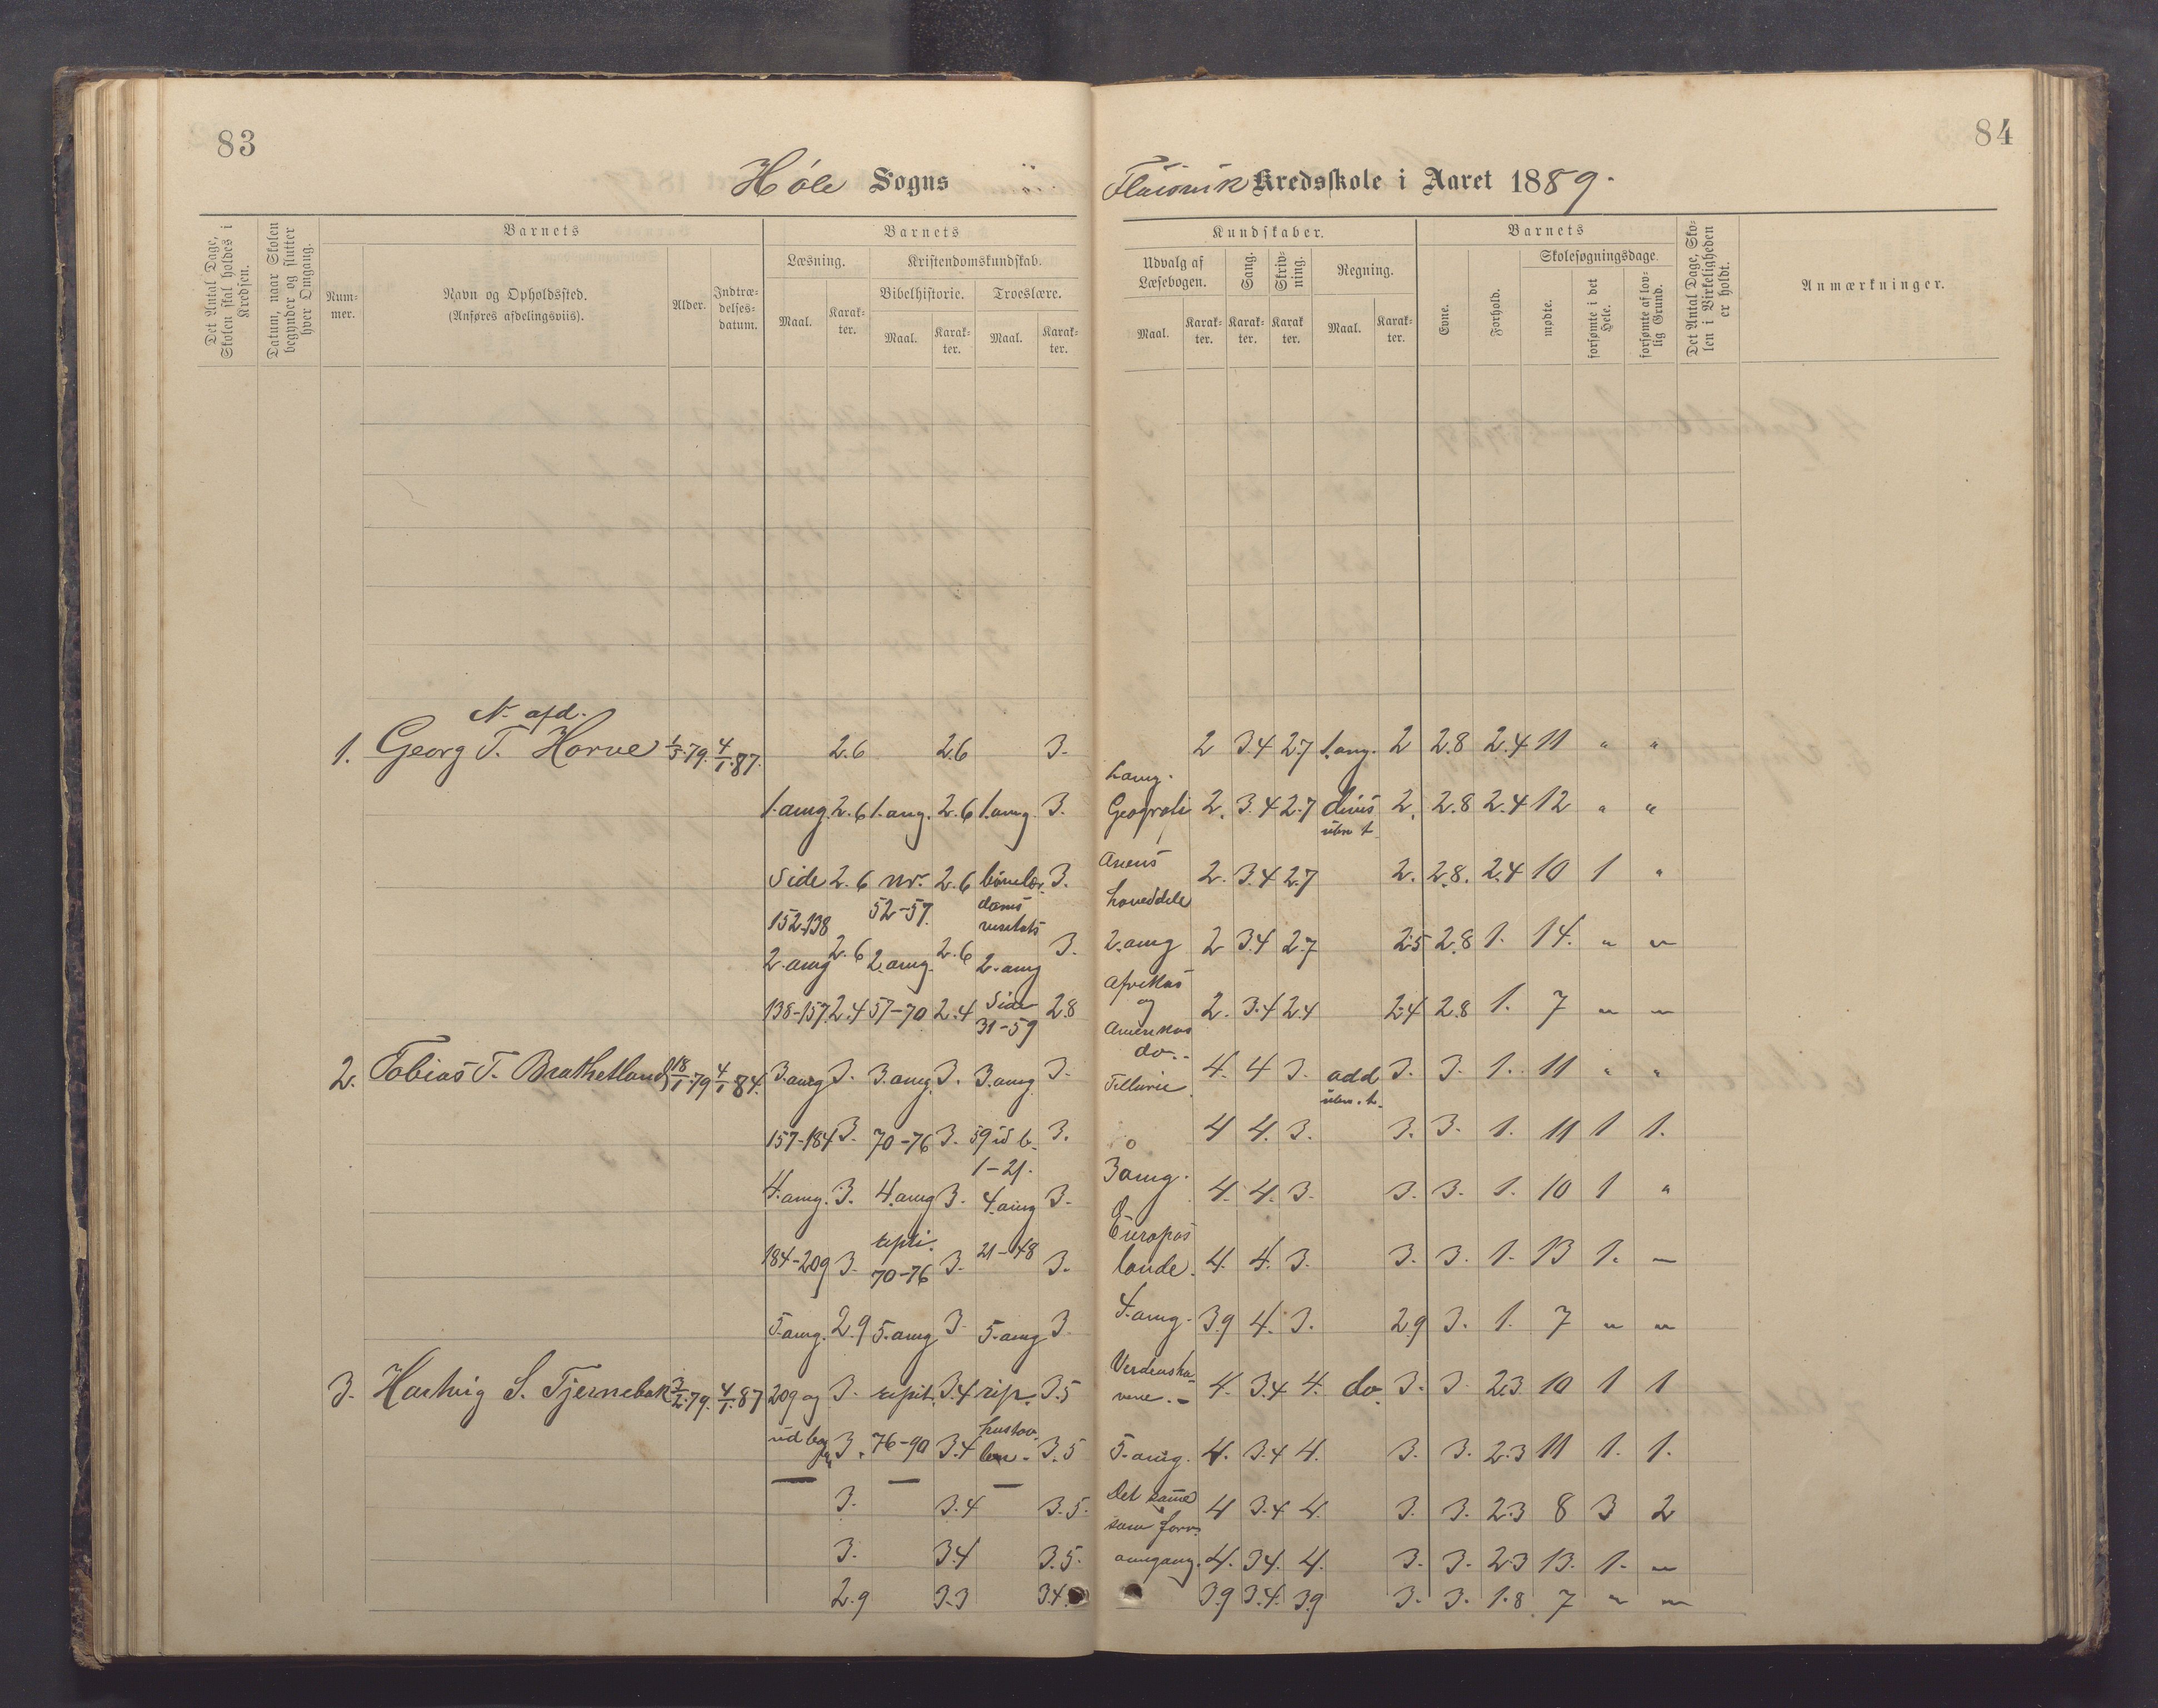 83
84
Høle Sogns
Kredsskole i Aaret 1889.
Det Antal Dage, Skolen skal holdes i Kredsen.
Datum, naar Skolen begynder og slutter hver Omgang.
Barnets
Num-
mer.
Navn og Opholdssted.
(Anføres afdelingsviis).
Alder.
Indtræ-
delses-
datum.
Barnets
Læsning.
Kristendomskundskab.
Bibelhistorie. Troeslære.
Maal. Karak-
ter.
Maal. Karak-
ter.
Maal. Karak-
ter.
Kundskaber.
Udvalg af
Læsebogen.
Sang.
Skriv-
ning.
Regning.
Maal. Karak-
ter.
Karak-
ter.
Karak
ter.
Maal. Karak-
ter.
Barnets
Evne.
Forhold.
Skolesøgningsdage.
mødte.
forsømte i det Hele.
forsømte af lov-
lig Grund.
Det Antal Dage, Sko-
len i Virkeligheden
er holdt.
Anmærkninger.
N. afd.
1. Georg T. Horve 1/5.79. 4/1.87. 2.6 2.6 3. 2 3.4 2.7 1.omg. 2 2.8 2.4 11 " "
1.omg. 2.6 1.omg. 2.6 1.omg. 3. Geografi 2. 3.4 2.7 2. 2.8 2.4 12 " "
Side 2.6 nr. 2.6 3. 2. 3.4 2.7 2. 2.8. 2.4 10 1 "
152-138 52-57. hoveddele
2.omg 2.6 2.omg. 2.6 2.omg 3. 2.omg 2 3.4 2.7 2.5 2.8 1. 14. " "
138-157. 2.4 57-70 2.4 Side 31-59 2.8 Afrikas og Amerikas 2. 3.4 2.4 2.4 2.8 1. 7 " "
2. Tobias T. Brathetland 18/1.79 4/1.84. 3.omg 3. 3.omg. 3. 3.omg. 3. do.. 4. 4 3. add 3. 3. 1. 11 " "
157-184 3. 70-76 3. 3. 4 4. 3. 3. 3. 1. 11 1 1.
1-21.
4.omg. 3. 4.omg 3. 4.omg 3. 3omg. 4. 4. 3. 3. 3. 1. 10 1 "
184-209 3. repti. 70-76 3. 21-48 3. Europas lande. 4. 4. 3. 3. 3. 1. 13 1. "
5.omg. 2.9 5.omg 3. 5.omg 3. 4.omg. 3.9 4. 3. 2.9 3. 1. 7 " "
3. Hartvig S. Tjernebak 3/2.79. 4/1.87 209 og 3. repit. 3.4 rep. 3.5 4. 3.4 4. do. 3. 3. 2.3 10 1 1
3. 76-90 3.4 3.5 5.omg. 4. 3.4 4. 3. 3. 2.3 11 1. 1.
3. 3.4 3.5. Det same 4 3.4 4. 3. 3. 2.3 8 3 2
som forr.
3. 3.4 3.5. omgang. 4. 3.4. 4. 3. 3. 2.3 13. 1. "
2.9 3.3 3.4. 3.9 3.4. 3.9 3. 3. 1.8 7 " "